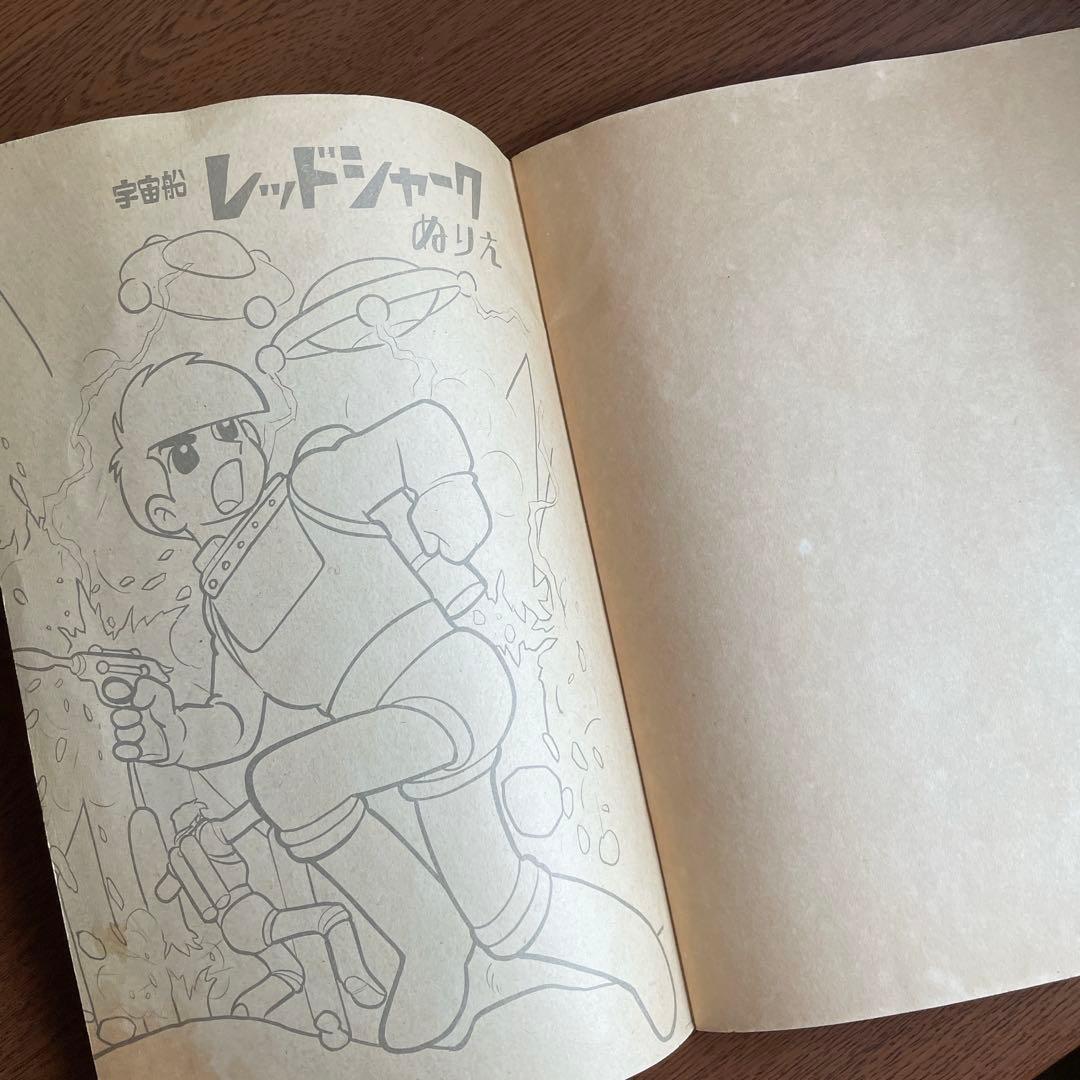 宇宙船 レッドシャーク
ぬりえ